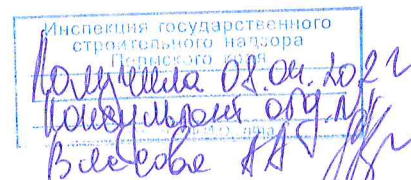 Инспекция государственного
строительного надзора
Пермского края
Получила 08.04.2022
консультант отд.
Власова АА